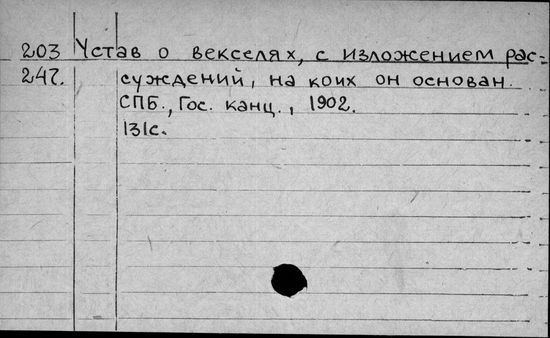 203 Устав о векселях, с изложением рас-
247. суждений, на коих он основан.
СПБ., Гос. канц., 1902.
131с.